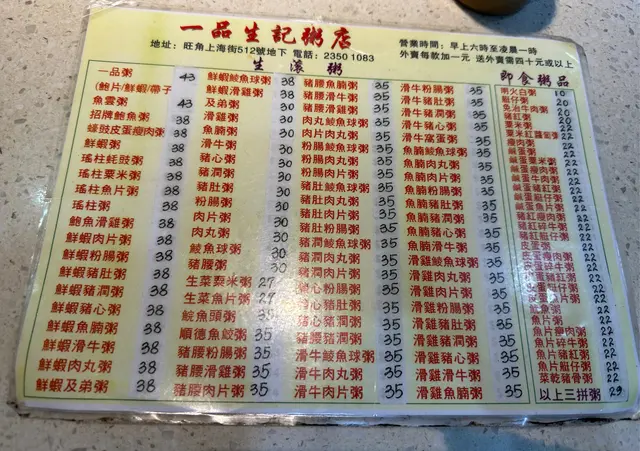 一品生記粥店
地址：旺角上海街512號地下 電話：2350 1083
營業時間：早上六時至凌晨一時
外賣每款加一元 送外賣需四十元或以上
生滾粥
一品粥 43
(鮑片/鮮蝦/帶子
魚雲粥 43
招牌鮑魚粥 38
蠔豉皮蛋瘦肉粥 38
鮮蝦粥 38
瑤柱蚝豉粥 38
瑤柱粟米粥 38
瑤柱魚片粥 38
瑤柱粥 38
鮑魚滑雞粥 38
鮮蝦肉片粥 38
鮮蝦粉腸粥 38
鮮蝦豬肚粥 38
鮮蝦豬潤粥 38
鮮蝦豬心粥 38
鮮蝦魚腩粥 38
鮮蝦滑牛粥 38
鮮蝦肉丸粥 38
鮮蝦及弟粥 38
鮮蝦鯪魚球粥 38
鮮蝦滑雞粥 38
及弟粥 30
滑雞粥 30
魚腩粥 30
滑牛粥 30
豬心粥 30
豬潤粥 30
豬肚粥 30
粉腸粥 30
肉片粥 30
肉丸粥 30
鯪魚粥 30
豬腰粥 30
生菜粟米粥 27
生菜魚片粥 27
鯇魚頭粥 35
順德魚餃粥 35
豬腰粉腸粥 35
豬腰滑雞粥 35
豬腰肉片粥 35
豬腰魚腩粥 35
豬腰肉丸粥 35
肉丸鯪魚球粥 35
肉片肉丸粥 35
粉腸鯪魚球粥 35
粉腸肉丸粥 35
粉腸肉片粥 35
豬肚鯪魚球粥 35
豬肚肉丸粥 35
豬肚肉片粥 35
豬肚粉腸粥 35
豬潤鯪魚球粥 35
豬潤肉丸粥 35
豬潤肉片粥 35
豬心粉腸粥 35
豬心豬肚粥 35
豬心豬潤粥 35
豬腰豬潤粥 35
滑牛鯪魚球粥 35
滑牛肉丸粥 35
滑牛肉片粥 35
滑牛粉腸粥 35
滑牛豬肚粥 35
滑牛豬潤粥 35
滑牛豬心粥 35
滑牛窩蛋粥 35
魚腩鯪魚球粥 35
魚腩肉丸粥 35
魚腩肉片粥 35
魚腩粉腸粥 35
魚腩豬肚粥 35
魚腩豬潤粥 35
魚腩豬心粥 35
魚腩滑牛粥 35
滑雞鯪魚球粥 35
滑雞肉丸粥 35
滑雞肉片粥 35
滑雞粉腸粥 35
滑雞豬肚粥 35
滑雞豬潤粥 35
滑雞豬心粥 35
滑雞滑牛粥 35
滑雞魚腩粥 35
即食粥品
明火白粥 10
艇仔粥 20
免治牛肉粥 20
豬紅粥 20
粟米粥 22
瘦肉粥 22
鹹蛋粥 22
鹹蛋粟米粥 22
鹹蛋瘦肉粥 22
鹹蛋牛肉粥 22
鹹蛋豬紅粥 22
鹹蛋艇仔粥 22
豬紅瘦肉粥 22
豬紅牛肉粥 22
豬紅艇仔粥 22
皮蛋粥 22
皮蛋瘦肉粥 22
魚片粥 22
魚片瘦肉粥 22
魚片碎牛粥 22
魚片豬紅粥 22
魚片艇仔粥 22
菜乾豬骨粥 22
以上三拼粥 29